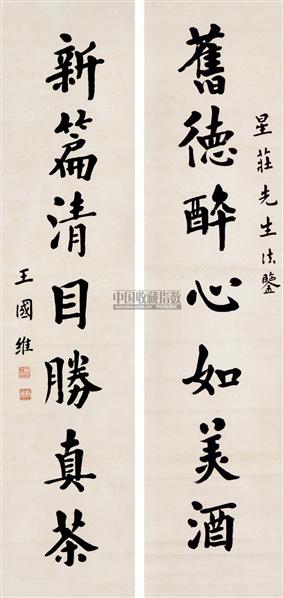 星莊先生法鑒
舊德醉心如美酒
新篇清目勝真茶
王國維
中国收藏指数